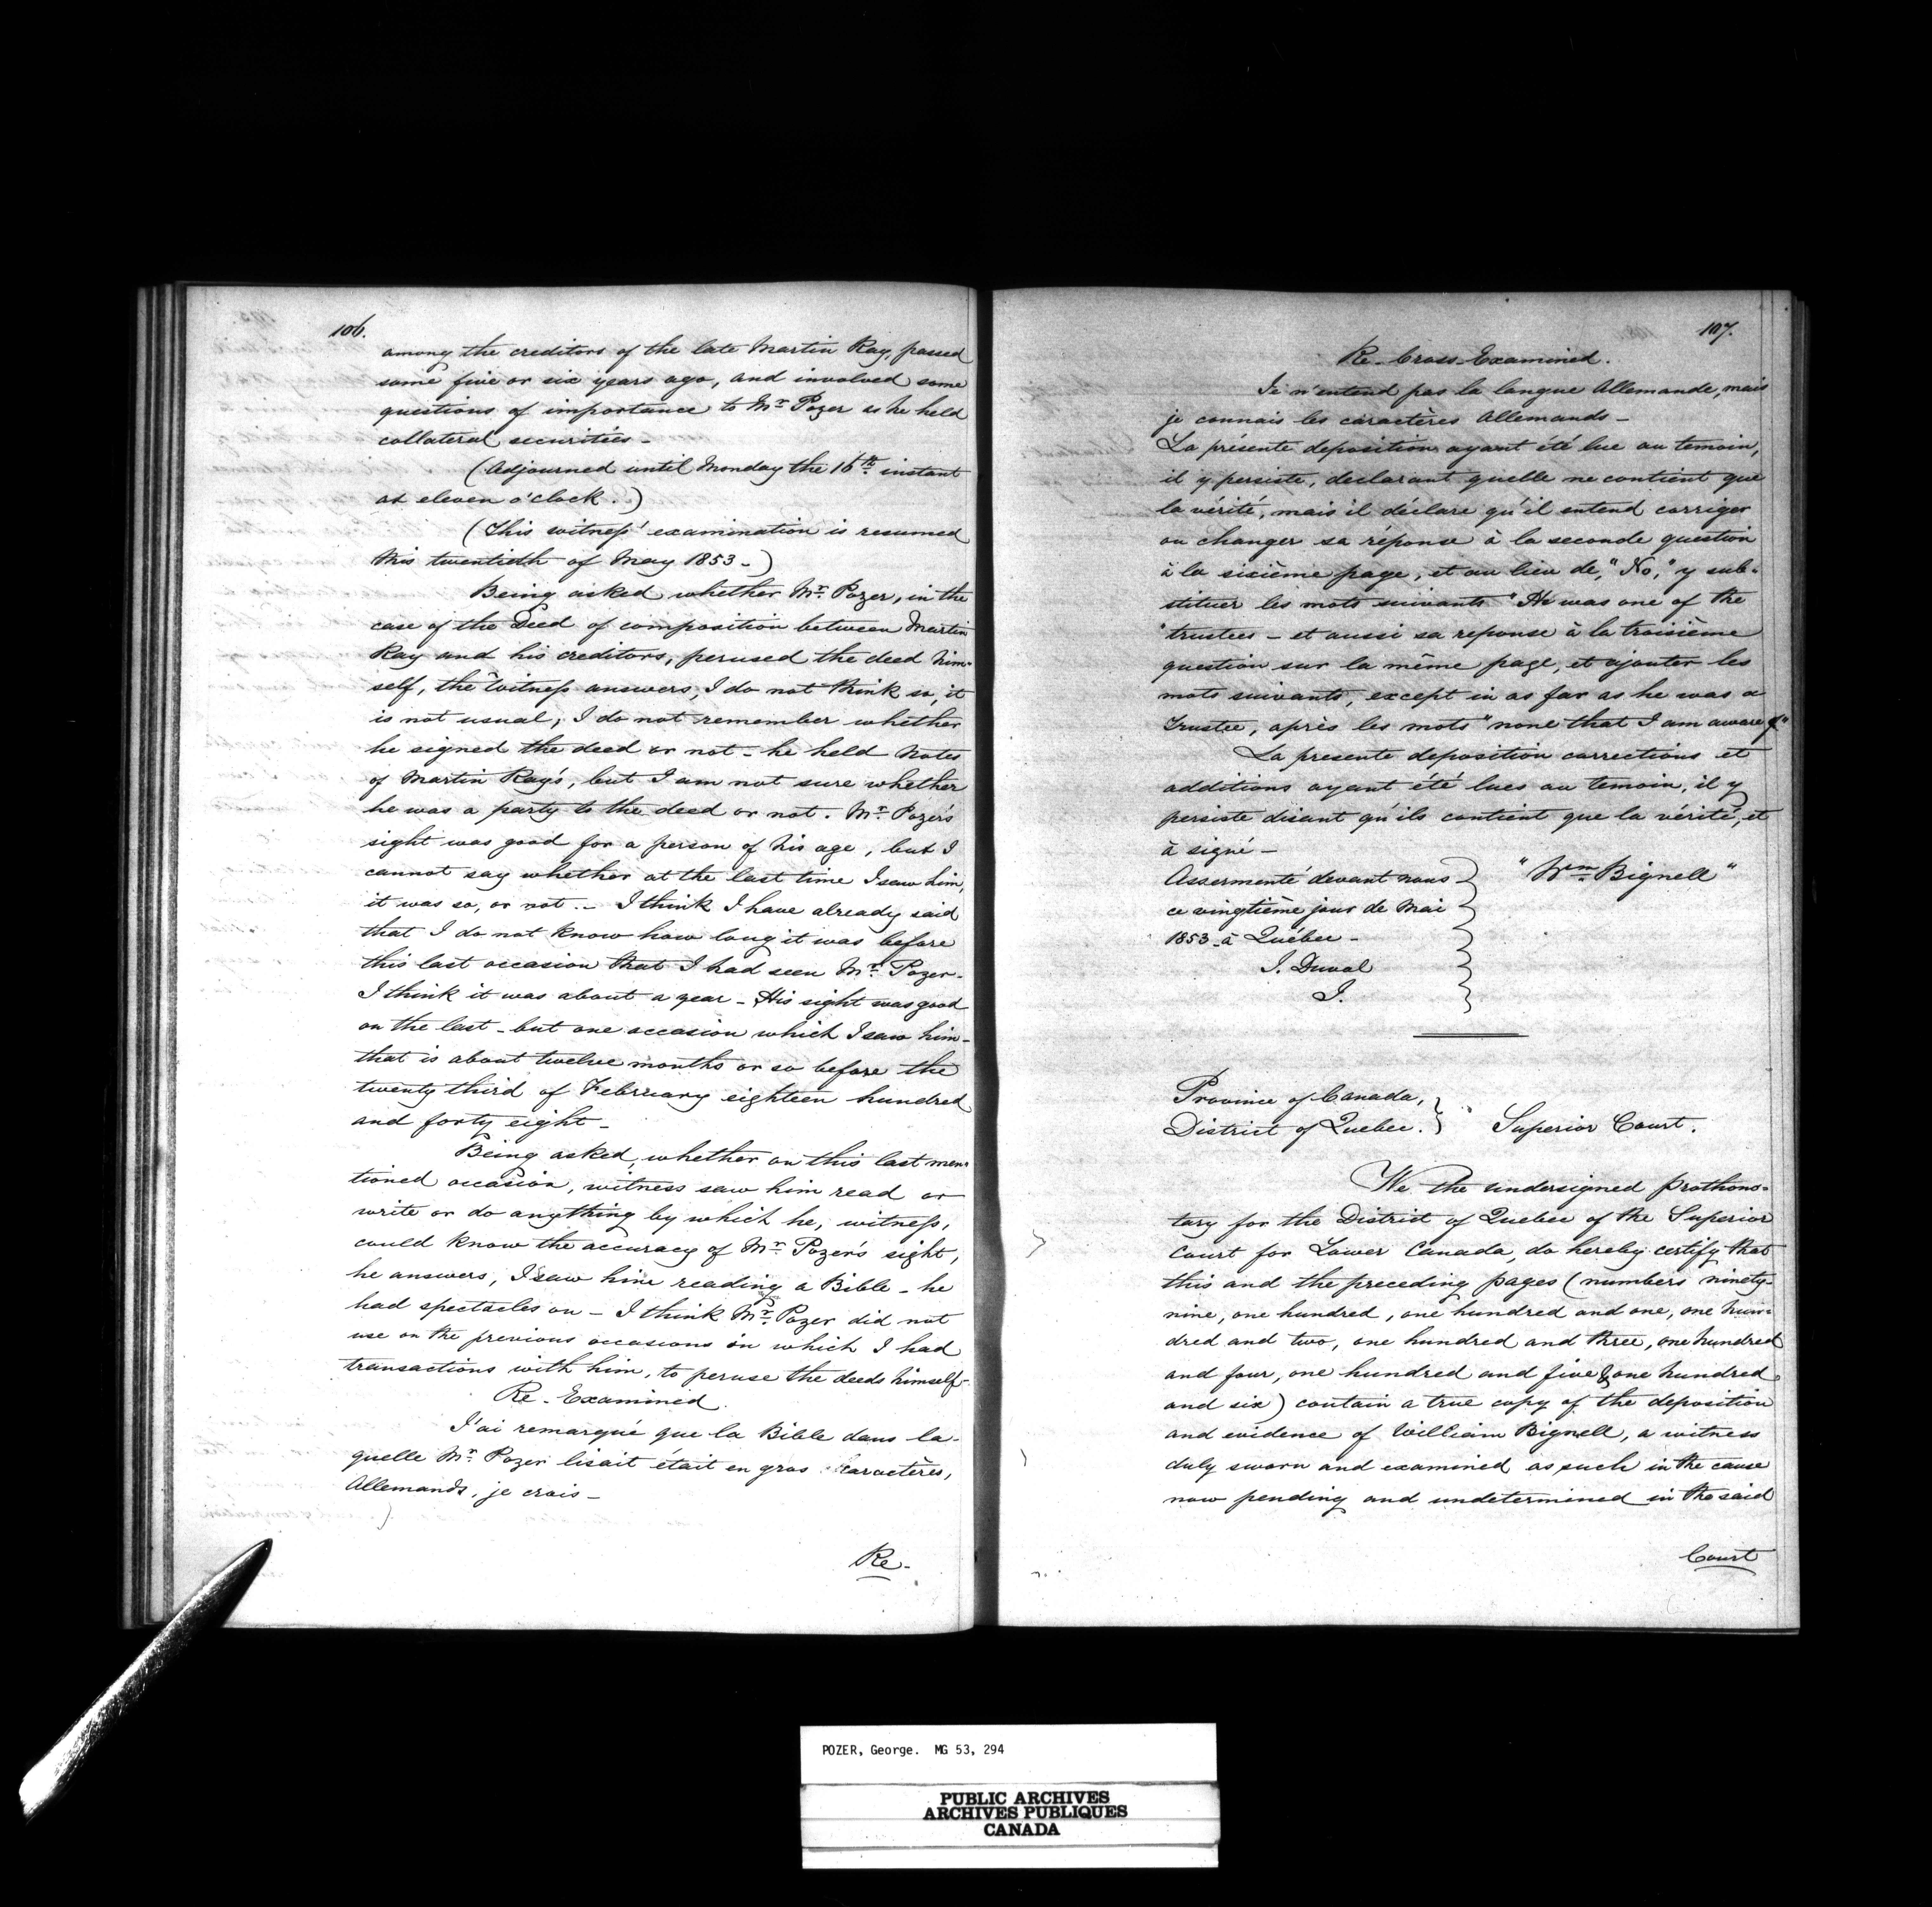 106.
among the creditors of the late Martin Ray, passed
some five or six years ago, and involved some
questions of importance to Mr. Pozer as he held
collateral securities –
(Adjourned until Monday the 16th instant
at eleven o'clock.)
(This witness' examination is resumed
this twentieth of May 1853 –)
Being asked whether Mr. Pozer, in the
case of the Deed of composition between Martin
Ray and his creditors, perused the deed him-
self, the Witness answers, I do not think so, it
is not usual, I do not remember whether
he signed the deed or not – he held notes
of Martin Ray's, but I am not sure whether
he was a party to the deed or not. Mr. Pozer's
sight was good for a person of his age, but I
cannot say whether at the last time I saw him,
it was so, or not. – I think I have already said
that I do not know how long it was before
this last occasion that I had seen Mr. Pozer –
I think it was about a year – His sight was good
on the last – but one occasion which I saw him –
that is about twelve months or so before the
twenty third of February eighteen hundred
and forty eight –
Being asked, whether on this last men-
tioned occasion, witness saw him read or
write or do anything by which he, witness,
could know the accuracy of Mr. Pozer's sight,
he answers, I saw him reading a Bible – he
had spectacles on – I think Mr. Pozer did not
use on the previous occasions in which I had
transactions with him, to peruse the deeds himself –
Re-Examined.
J'ai remarqué que la Bible dans la-
quelle Mr. Pozer lisait était en gros caractères,
Allemands, je crois –
Re-
107.
Re-Cross-Examined.
Je n'entend pas la langue Allemande, mais
je connais les caractères Allemands –
La présente deposition ayant été lue au temoin,
il y persiste, declarant quelle ne contient que
la vérité, mais il déclare qu'il entend corriger
ou changer sa réponse à la seconde question
à la sixième page, et au lieu de, "No," y sub-
stituer les mots suivants "He was one of the
"trustees – et aussi sa reponse à la troisième
question sur la même page, et ajouter les
mots suivants, except in as far as he was a
Trustee, après les mots "none that I am aware of"
La presente deposition corrections et
additions ayant été lues au temoin, il y
persiste disant qu'ils contient que la vérité, et
à signé –
Assermenté devant nous
ce vingtième jour de Mai
1853 – à Québec –
J. Duval
J.
"Wm. Bignell"
Province of Canada,
District of Quebec.
Superior Court.
We the undersigned Prothono-
tary for the District of Quebec of the Superior
Court for Lower Canada, do hereby certify that
this and the preceding pages (numbers ninety-
nine, one hundred, one hundred and one, one hun-
dred and two, one hundred and three, one hundred
and four, one hundred and five & one hundred
and six) contain a true copy of the deposition
and evidence of William Bignell, a witness
duly sworn and examined as such in the cause
now pending and undetermined in the said
Court
POZER, George. MG 53, 294
PUBLIC ARCHIVES
ARCHIVES PUBLIQUES
CANADA